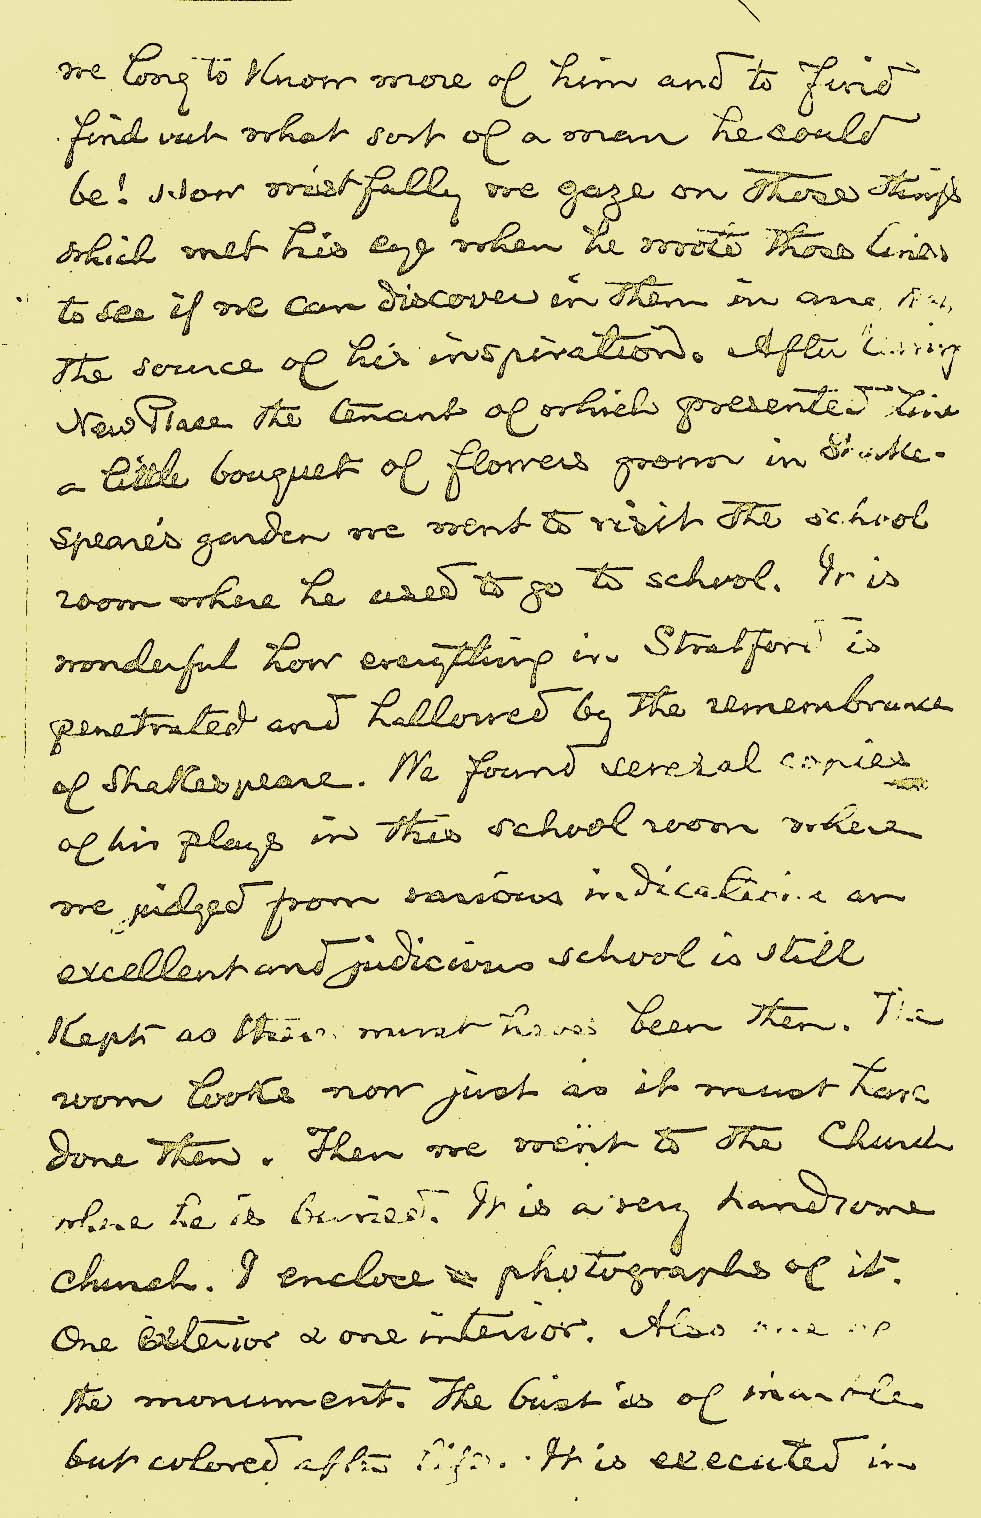 we long to Know more of him and to find
find out what sort of a man he could
be! How wistfully we gaze on those things
which met his eye when he wrote those lines
to see if we can discover in them in any way
the source of his inspiration. After
New Place the tenant of which presented
a little bouquet of flowers grown in Shake-
speare's garden we went to visit the school
room where he used to go to school. It is
wonderful how everything in Stratford is
penetrated and hallowed by the remembrance
of Shakespeare. We found several copies
of his plays in this school room where
we judged from various indications an
excellent and judicious school is still
Kept as there must have been then. The
room looks now just as it must have
done then. Then we went to the Church
where he is buried. It is a very handsome
church. I enclose photographs of it.
One exterior & one interior. Also one of
the monument. The bust is of marble
but colored after life. It is executed in